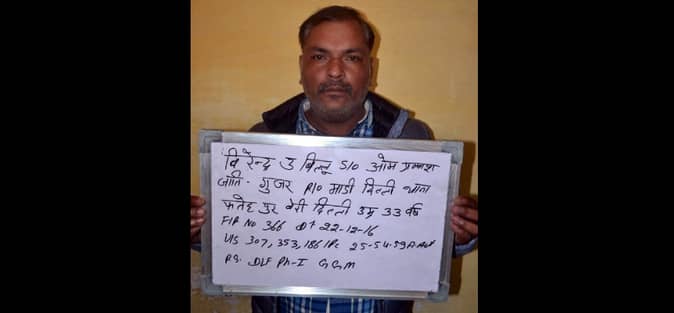 विरेन्द्र उ बिल्लू S/O ओम प्रकाश
जाति - गुजर R/O माडी दिल्ली थाना
फतेह पुर बेरी दिल्ली उम्र 33 वर्ष
FIR No 366 Dt 22-12-16
U/S 307, 353, 186 IPC 25-54-59 A. Act
P.S. DLF Ph-I GGM